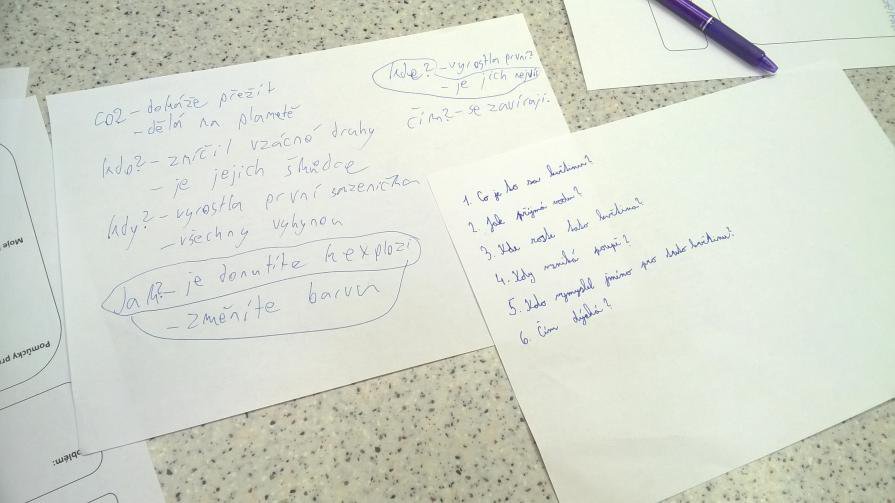 CO? - dokáže přežít
- dělá na planetě
kdo? - zničil vzácné druhy
- je jejich škůdce
kdy? - vyrostla první sazenička
- všechny vyhynou
Jak? - je donutíte k explozi
- změníte barvu
kde? - vyrostla první?
- je jich nejvíc
čím? - se zavírají.
1. Co je to za květinu?
2. Jak přijímá vodu?
3. Kde roste tato květina?
4. Kdy vzniká poupě?
5. Kdo vymyslel jméno pro tuto květinu?
6. Čím dýchá?
Moje
Pomůcky pr
oblém: